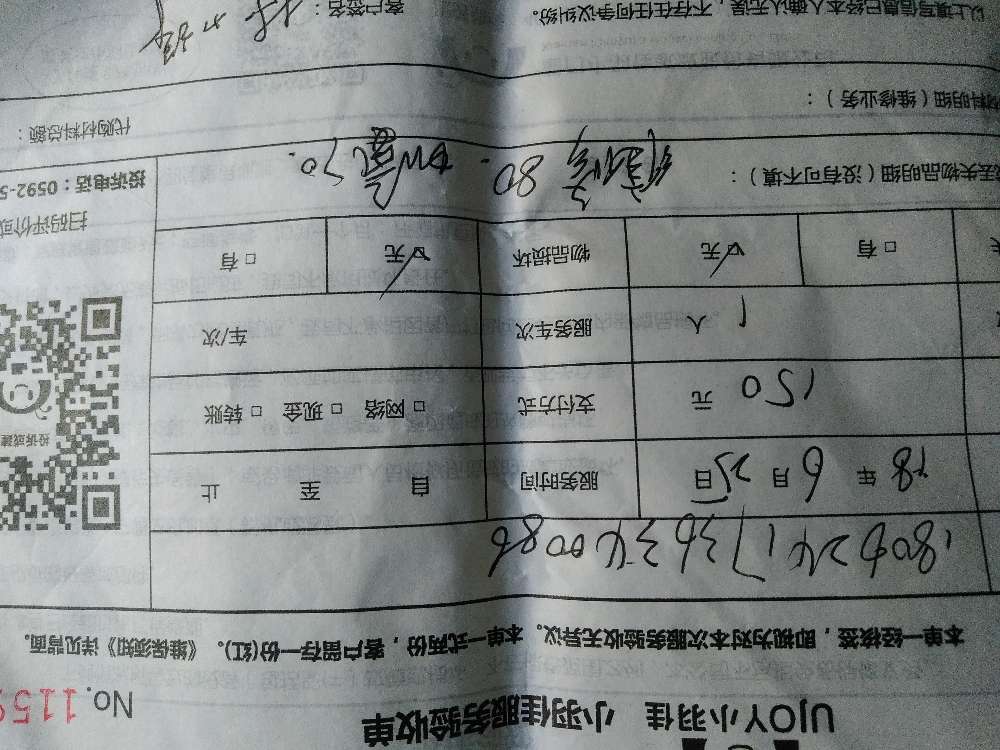 UJOY小羽佳 小羽佳服务验收单
No.1159
本单一经核签,即视为对本次服务验收无异议。本单一式两份,客户留存一份(红)。《维保须知》详见背面。
18年6月25日 服务时间 自 至 止
150 元 支付方式 □ 网络 □ 现金 □ 转账
1 人 服务车次 车/次
□ 有 □ 无 物品损坏 □ 无 □ 有
丢失物品明细(没有可不填): 80. 加氟70.
材料明细(维修业务):
代购材料总额:
以上填写信息已经本人确认无误,不存在任何争议纠纷。 客户签名:
投诉或建
扫码评价或
投诉电话:0592-5